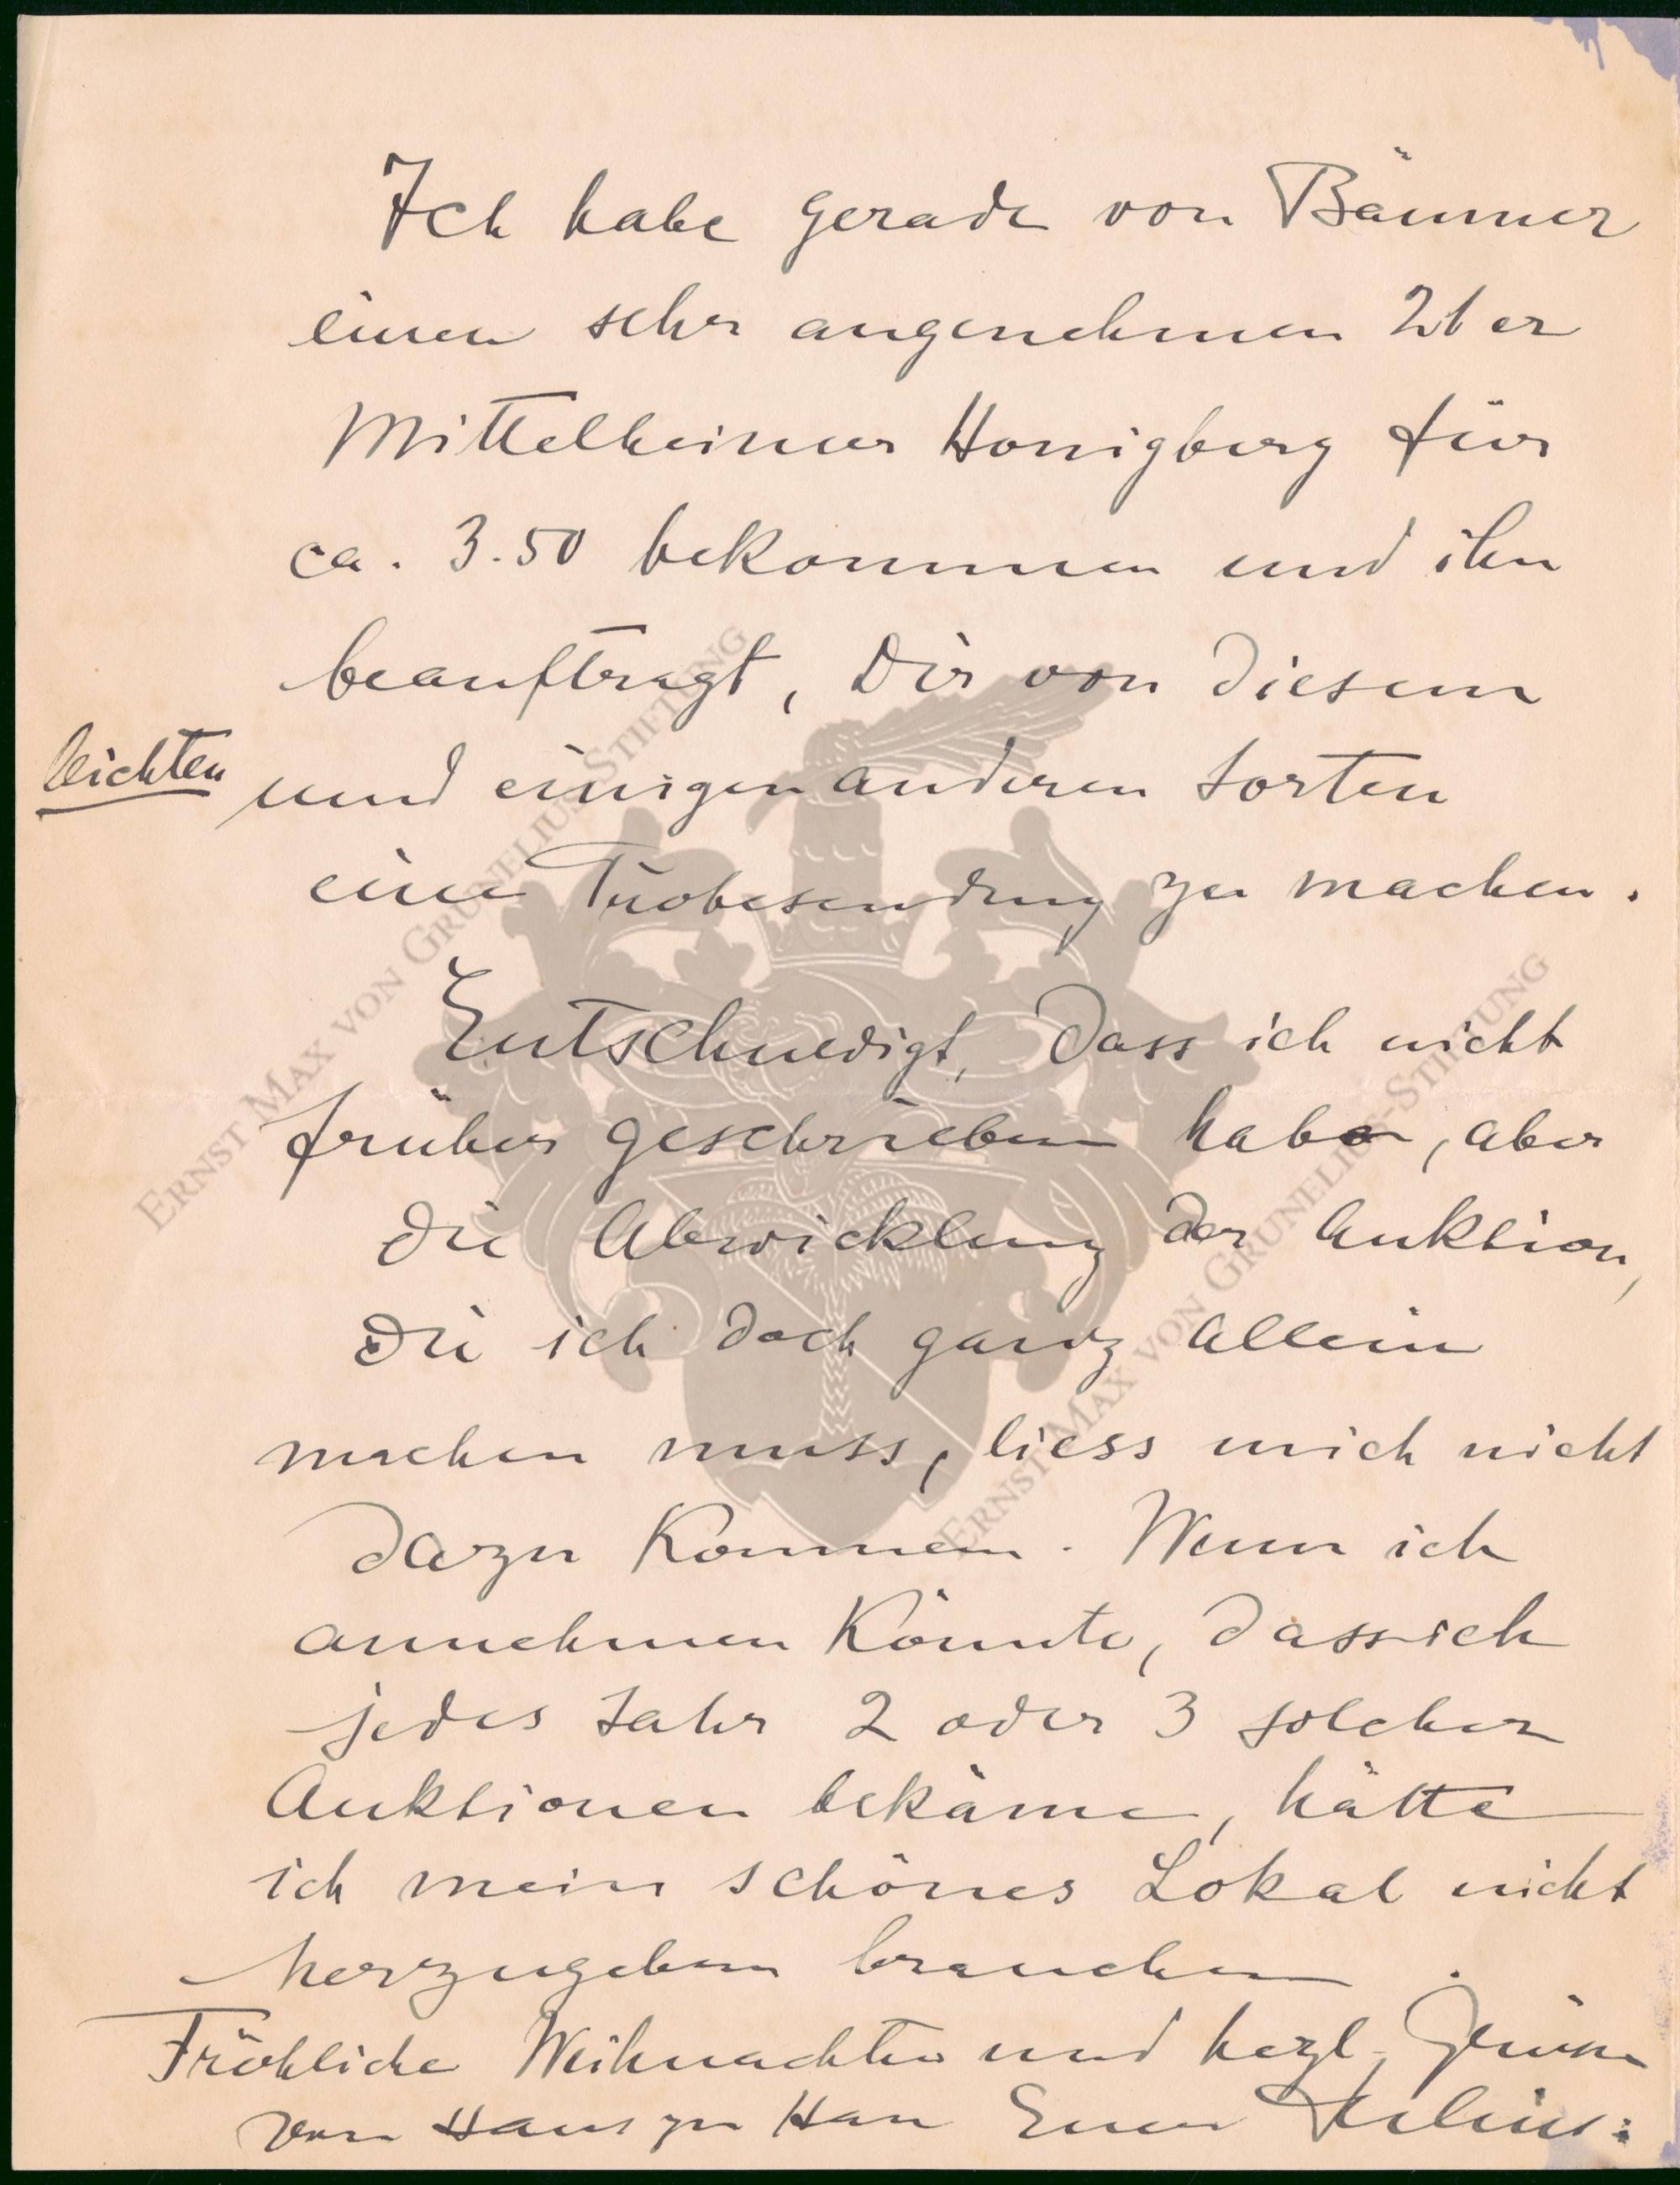 Ich habe gerade von Bäumer
einen sehr angenehmen 26er
Mittelheimer Honigberg für
ca. 3.50 bekommen und ihn
beauftragt, Dir von diesem
leichten und einigen anderen Sorten
eine Probesendung zu machen.
Entschuldigt, dass ich nicht
früher geschrieben habe, aber
die Abwicklung der Auktion,
die ich doch ganz allein
machen muss, liess mich nicht
dazu kommen. Wenn ich
annehmen könnte, dass ich
jedes Jahr 2 oder 3 solcher
Auktionen bekäme, hätte
ich mein schönes Lokal nicht
herzugeben brauchen.
Fröhliche Weihnachten und hezl. Grüsse
von Haus zu Haus Euer
ERNST MAX VON GRUNELIUS-STIFTUNG
ERNST MAX VON GRUNELIUS-STIFTUNG